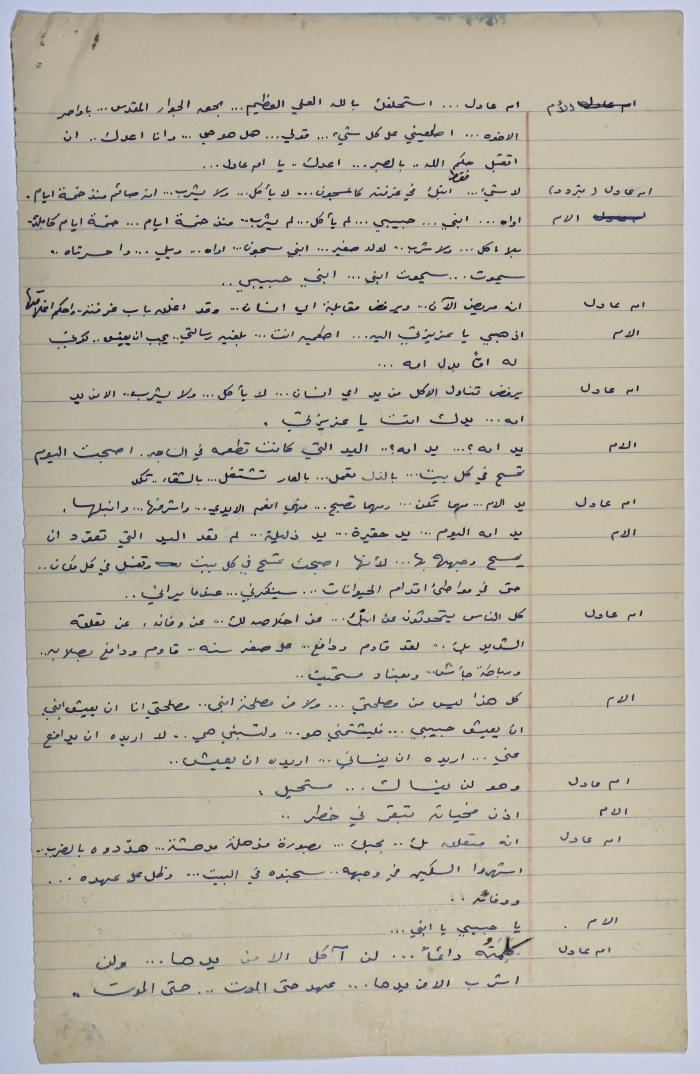 الأم ام عادل ... استحلفك بالله العلي العظيم ... بحق الجوار المقدس ... باواصر
الاخوه ... اطلعيني على كل شيء ... قولي ... هل هو حي ... وانا اعدك .. ان
اتقبل حكم الله .. بالصبر ... اعدك .. يا ام عادل ...
ام عادل (بتردد) لا شيء ... فقط ابنك في غرفته كالمسجون ... لا يأكل ... ولا يشرب ... انه صائم منذ خمسة ايام .
الام اواه ... ابني ... حبيبي ... لم يأكل ... لم يشرب .. منذ خمسة ايام ... خمسة ايام كاملة ..
بلا اكل ... ولا شرب .. لولد صغير ... ابني مسجون ... اواه ... ويلي ... واحسرتاه ..
سيموت ... سيموت ابني ... ابني حبيبي ..
ام عادل انه مريض الآن ... ويرفض مقابلة اي انسان ... وقد اغلق باب غرفته .. واحكم اغلاقها
الام اذهبي يا عزيزتي اليه ... اطعميه انت ... بلغيه رسالتي .. يجب ان يعيش .. كوني
له اماً بدل امه ...
ام عادل يرفض تناول الاكل من يد اي انسان ... لا يأكل ... ولا يشرب .. الا من يد
امه ... يدك انت يا عزيزتي .
الام يد امه ؟ ... يد امه ؟ .. اليد التي كانت تطعمه في السابق . اصبحت اليوم
تمسح في كل بيت ... بالذل تعمل ... بالعار تشتغل ... بالشقاء ..
ام عادل يد الام ... مهما تكن ... ومهما تصبح ... فهي انعم الايدي ... واشرفها ... وانبلها .
الام يد امه اليوم ... يد حقيرة ... يد ذليلة ... لم تعد اليد التي تعوّد ان
يمسح وجهه بها ... لأنها اصبحت تمسح في كل بيت وتغسل في كل مكان ..
حتى في مواطئ اقدام الحيوانات ... سينكرني ... عندما يراني ..
ام عادل كل الناس يتحدثون عن ابنك ... عن اخلاصه لك ... عن وفائه . عن تعلقه
الشديد بك .. لقد قاوم ودافع ... على صغر سنه ... قاوم ودافع بصلابه ..
ورباطة جأش ... وبعناد مستميت ..
الام كل هذا ليس من مصلحتي ... ولا من مصلحة ابني .. مصلحتي انا ان يعيش ابني
ان يعيش حبيبي ... فليشتمني هو ... ولتسبني هي .. لا اريده ان يدافع
عني ... اريده ان ينساني ... اريده ان يعيش ..
ام عادل وهو لن ينساك ... مستحيل .
الام اذن فحياته تبقى في خطر ..
ام عادل انه متعلق بك .. بحبك ... بصورة مذهلة مدهشة ... هدّدوه بالضرب ..
اشهروا السكين في وجهه .. سجنوه في البيت ... وظل على عهده ...
ووفائه ..
الام . يا حبيبي يا ابني ...
ام عادل كلمته دائماً ... لن آكل الا من يدها ... ولن
اشرب الا من يدها ... عهد حتى الموت ... حتى الموت ..